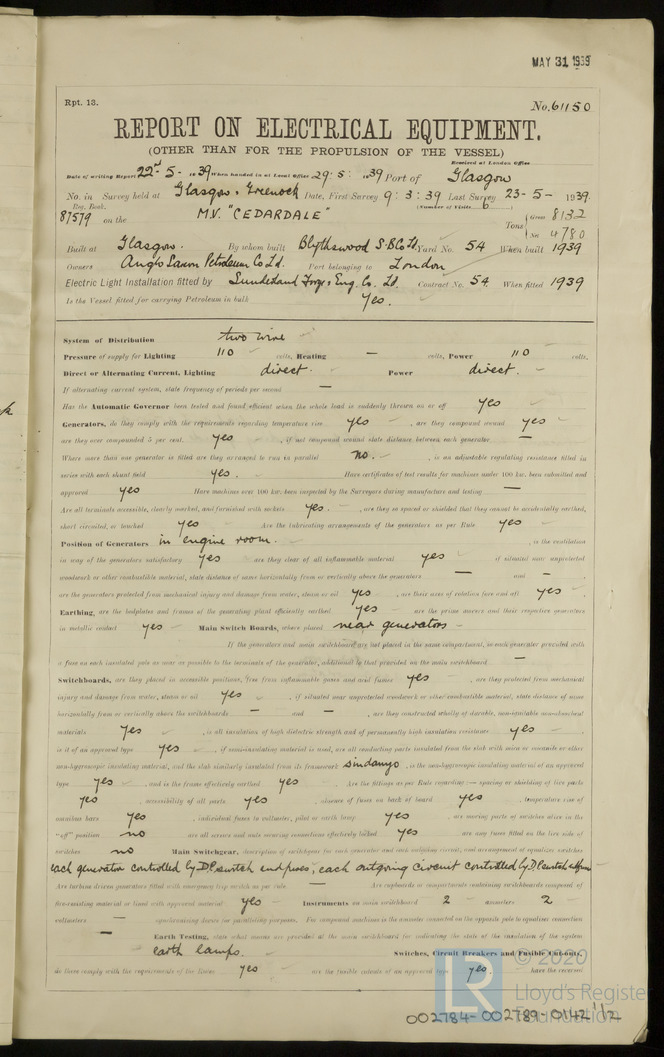 MAY 31 1939
Rpt. 13.
No. 61150
REPORT ON ELECTRICAL EQUIPMENT.
(OTHER THAN FOR THE PROPULSION OF THE VESSEL)
Received at London Office
Date of writing Report 22nd - 5 - 1939 When handed in at Local Office 29 : 5 : 1939 Port of Glasgow
No. in Survey held at Glasgow & Greenock Date, First Survey 9 : 3 : 39 Last Survey 23 - 5 - 1939
Reg. Book. (Number of Visits 6
87579 on the M.V. "CEDARDALE" Tons { Gross 8132
Net 4780
Built at Glasgow. By whom built Blythswood S.B. Co Ltd. Yard No. 54 When built 1939
Owners Anglo Saxon Petroleum Co Ltd. Port belonging to London
Electric Light Installation fitted by Sunderland Forge & Eng. Co. Ltd. Contract No. 54 When fitted 1939
Is the Vessel fitted for carrying Petroleum in bulk Yes.
System of Distribution two wire
Pressure of supply for Lighting 110 volts, Heating — volts, Power 110 volts.
Direct or Alternating Current, Lighting direct. Power direct.
If alternating current system, state frequency of periods per second —
Has the Automatic Governor been tested and found efficient when the whole load is suddenly thrown on or off yes
Generators, do they comply with the requirements regarding temperature rise yes , are they compound wound yes
are they over compounded 5 per cent. yes , if not compound wound state distance between each generator —
Where more than one generator is fitted are they arranged to run in parallel no. , is an adjustable regulating resistance fitted in
series with each shunt field yes. Have certificates of test results for machines under 100 kw. been submitted and
approved yes Have machines over 100 kw. been inspected by the Surveyors during manufacture and testing —
Are all terminals accessible, clearly marked, and furnished with sockets yes. , are they so spaced or shielded that they cannot be accidentally earthed,
short circuited, or touched yes Are the lubricating arrangements of the generators as per Rule yes
Position of Generators in engine room. , is the ventilation
in way of the generators satisfactory yes are they clear of all inflammable material yes if situated near unprotected
woodwork or other combustible material, state distance of same horizontally from or vertically above the generators — and — ,
are the generators protected from mechanical injury and damage from water, steam or oil yes , are their axes of rotation fore and aft yes
Earthing, are the bedplates and frames of the generating plant efficiently earthed yes are the prime movers and their respective generators
in metallic contact yes Main Switch Boards, where placed near generators
If the generators and main switchboard are not placed in the same compartment, is each generator provided with
a fuse on each insulated pole as near as possible to the terminals of the generator, additional to that provided on the main switchboard —
Switchboards, are they placed in accessible positions, free from inflammable gases and acid fumes yes , are they protected from mechanical
injury and damage from water, steam or oil yes , if situated near unprotected woodwork or other combustible material, state distance of same
horizontally from or vertically above the switchboards — and — , are they constructed wholly of durable, non-ignitable non-absorbent
materials yes , is all insulation of high dielectric strength and of permanently high insulation resistance yes ,
is it of an approved type yes , if semi-insulating material is used, are all conducting parts insulated from the slab with mica or micanite or other
non-hygroscopic insulating material, and the slab similarly insulated from its framework sindanyo , is the non-hygroscopic insulating material of an approved
type yes , and is the frame effectively earthed yes Are the fittings as per Rule regarding :— spacing or shielding of live parts
yes , accessibility of all parts yes , absence of fuses on back of board yes , temperature rise of
omnibus bars yes , individual fuses to voltmeter, pilot or earth lamp yes , are moving parts of switches alive in the
"off" position no are all screws and nuts securing connections effectively locked yes are any fuses fitted on the live side of
switches no Main Switchgear, description of switchgear for each generator and each outgoing circuit, and arrangement of equalizer switches
each generator controlled by D.P. switch and fuses, each outgoing circuit controlled by D.P. switch & fuses
Are turbine driven generators fitted with emergency trip switch as per rule — Are cupboards or compartments containing switchboards composed of
fire-resisting material or lined with approved material yes Instruments on main switchboard 2 ammeters 2
voltmeters — synchronising device for paralleling purposes. For compound machines is the ammeter connected on the opposite pole to equaliser connection
— Earth Testing, state what means are provided at the main switchboard for indicating the state of the insulation of the system
earth lamps. Switches, Circuit Breakers and Fusible Cut-outs,
do these comply with the requirements of the Rules yes are the fusible cutouts of an approved type yes. have the reversed
© 2020
LR
Lloyd's Register
Foundation
002784-002789-0142 1/2